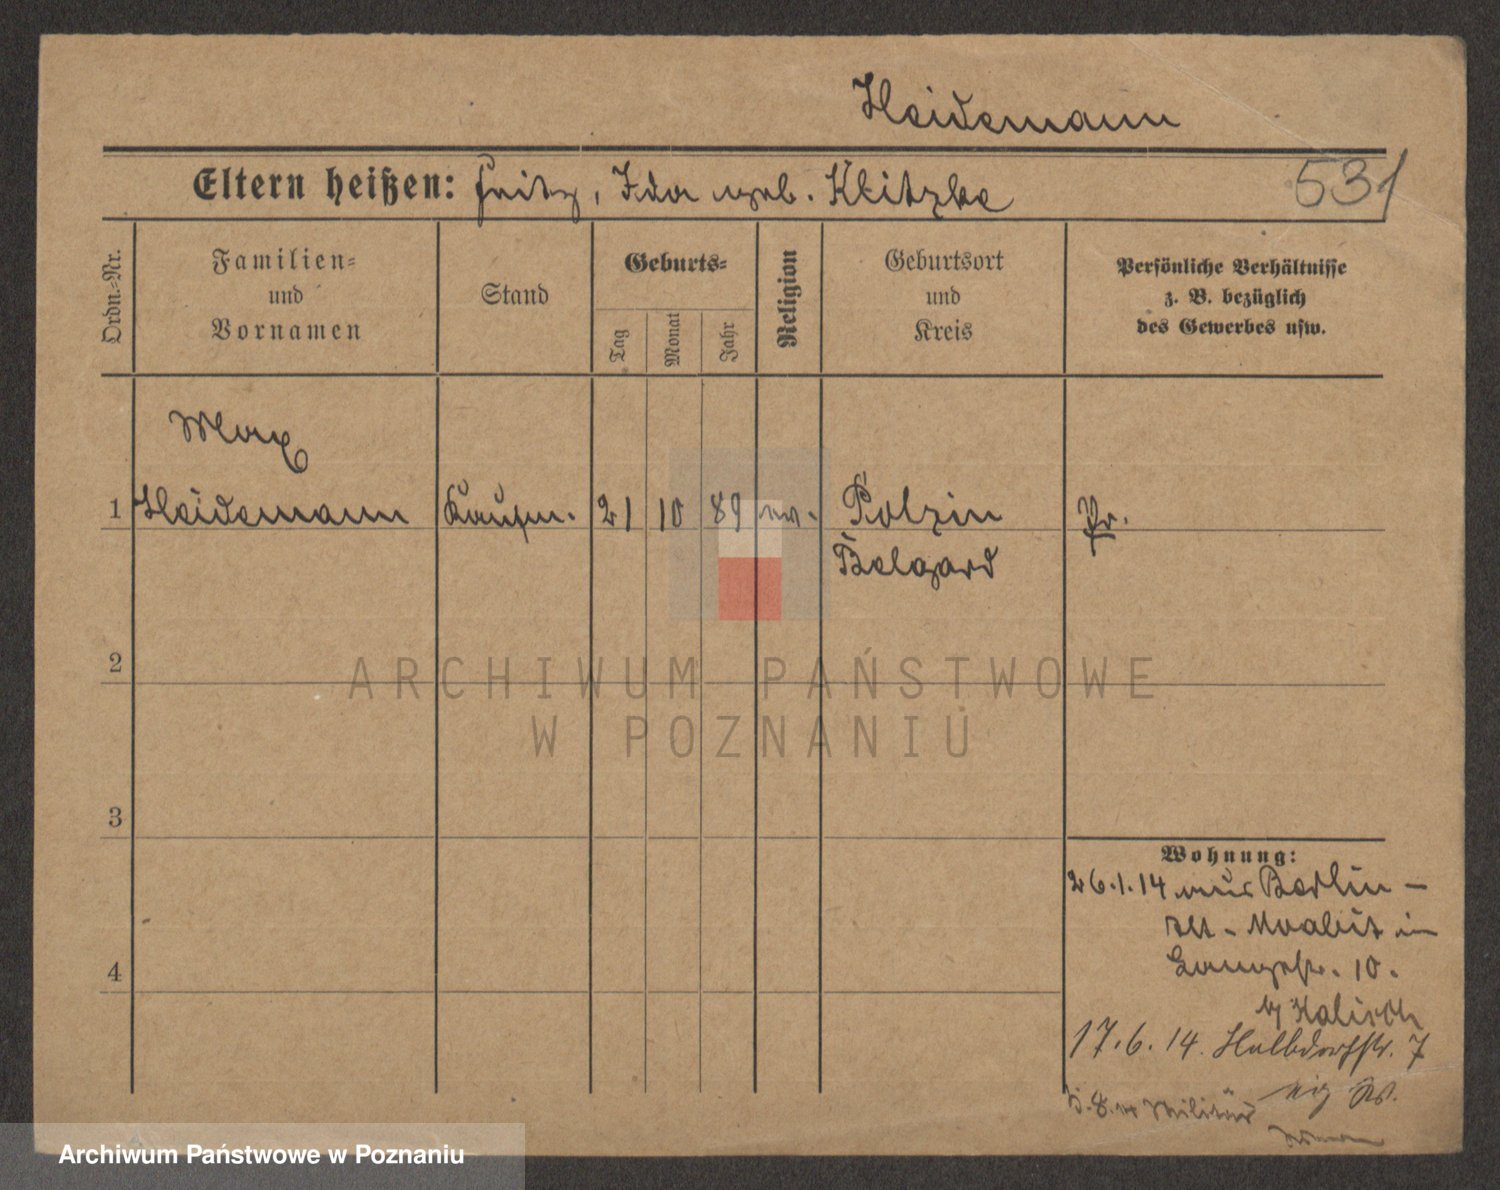 Heidemann
Eltern heißen: Fritz, Ida geb. Klitzke
531
Ordn.=Nr.
Familien=
und
Vornamen
Stand
Geburts=
Tag
Monat
Jahr
Religion
Geburtsort
und
Kreis
Persönliche Verhältnisse
z. B. bezüglich
des Gewerbes usw.
Max
1 Heidemann Kaufm. 21 10 89 ev. Polzin Pr.
Belgard
2
3
4
Wohnung:
26.1.14 aus Berlin –
Alt - Moabit in
Langestr. 10.
b/ Kalisch
17.6.14. Halbdorfstr. 7
Militär
ARCHIWUM PAŃSTWOWE
W POZNANIU
Archiwum Państwowe w Poznaniu